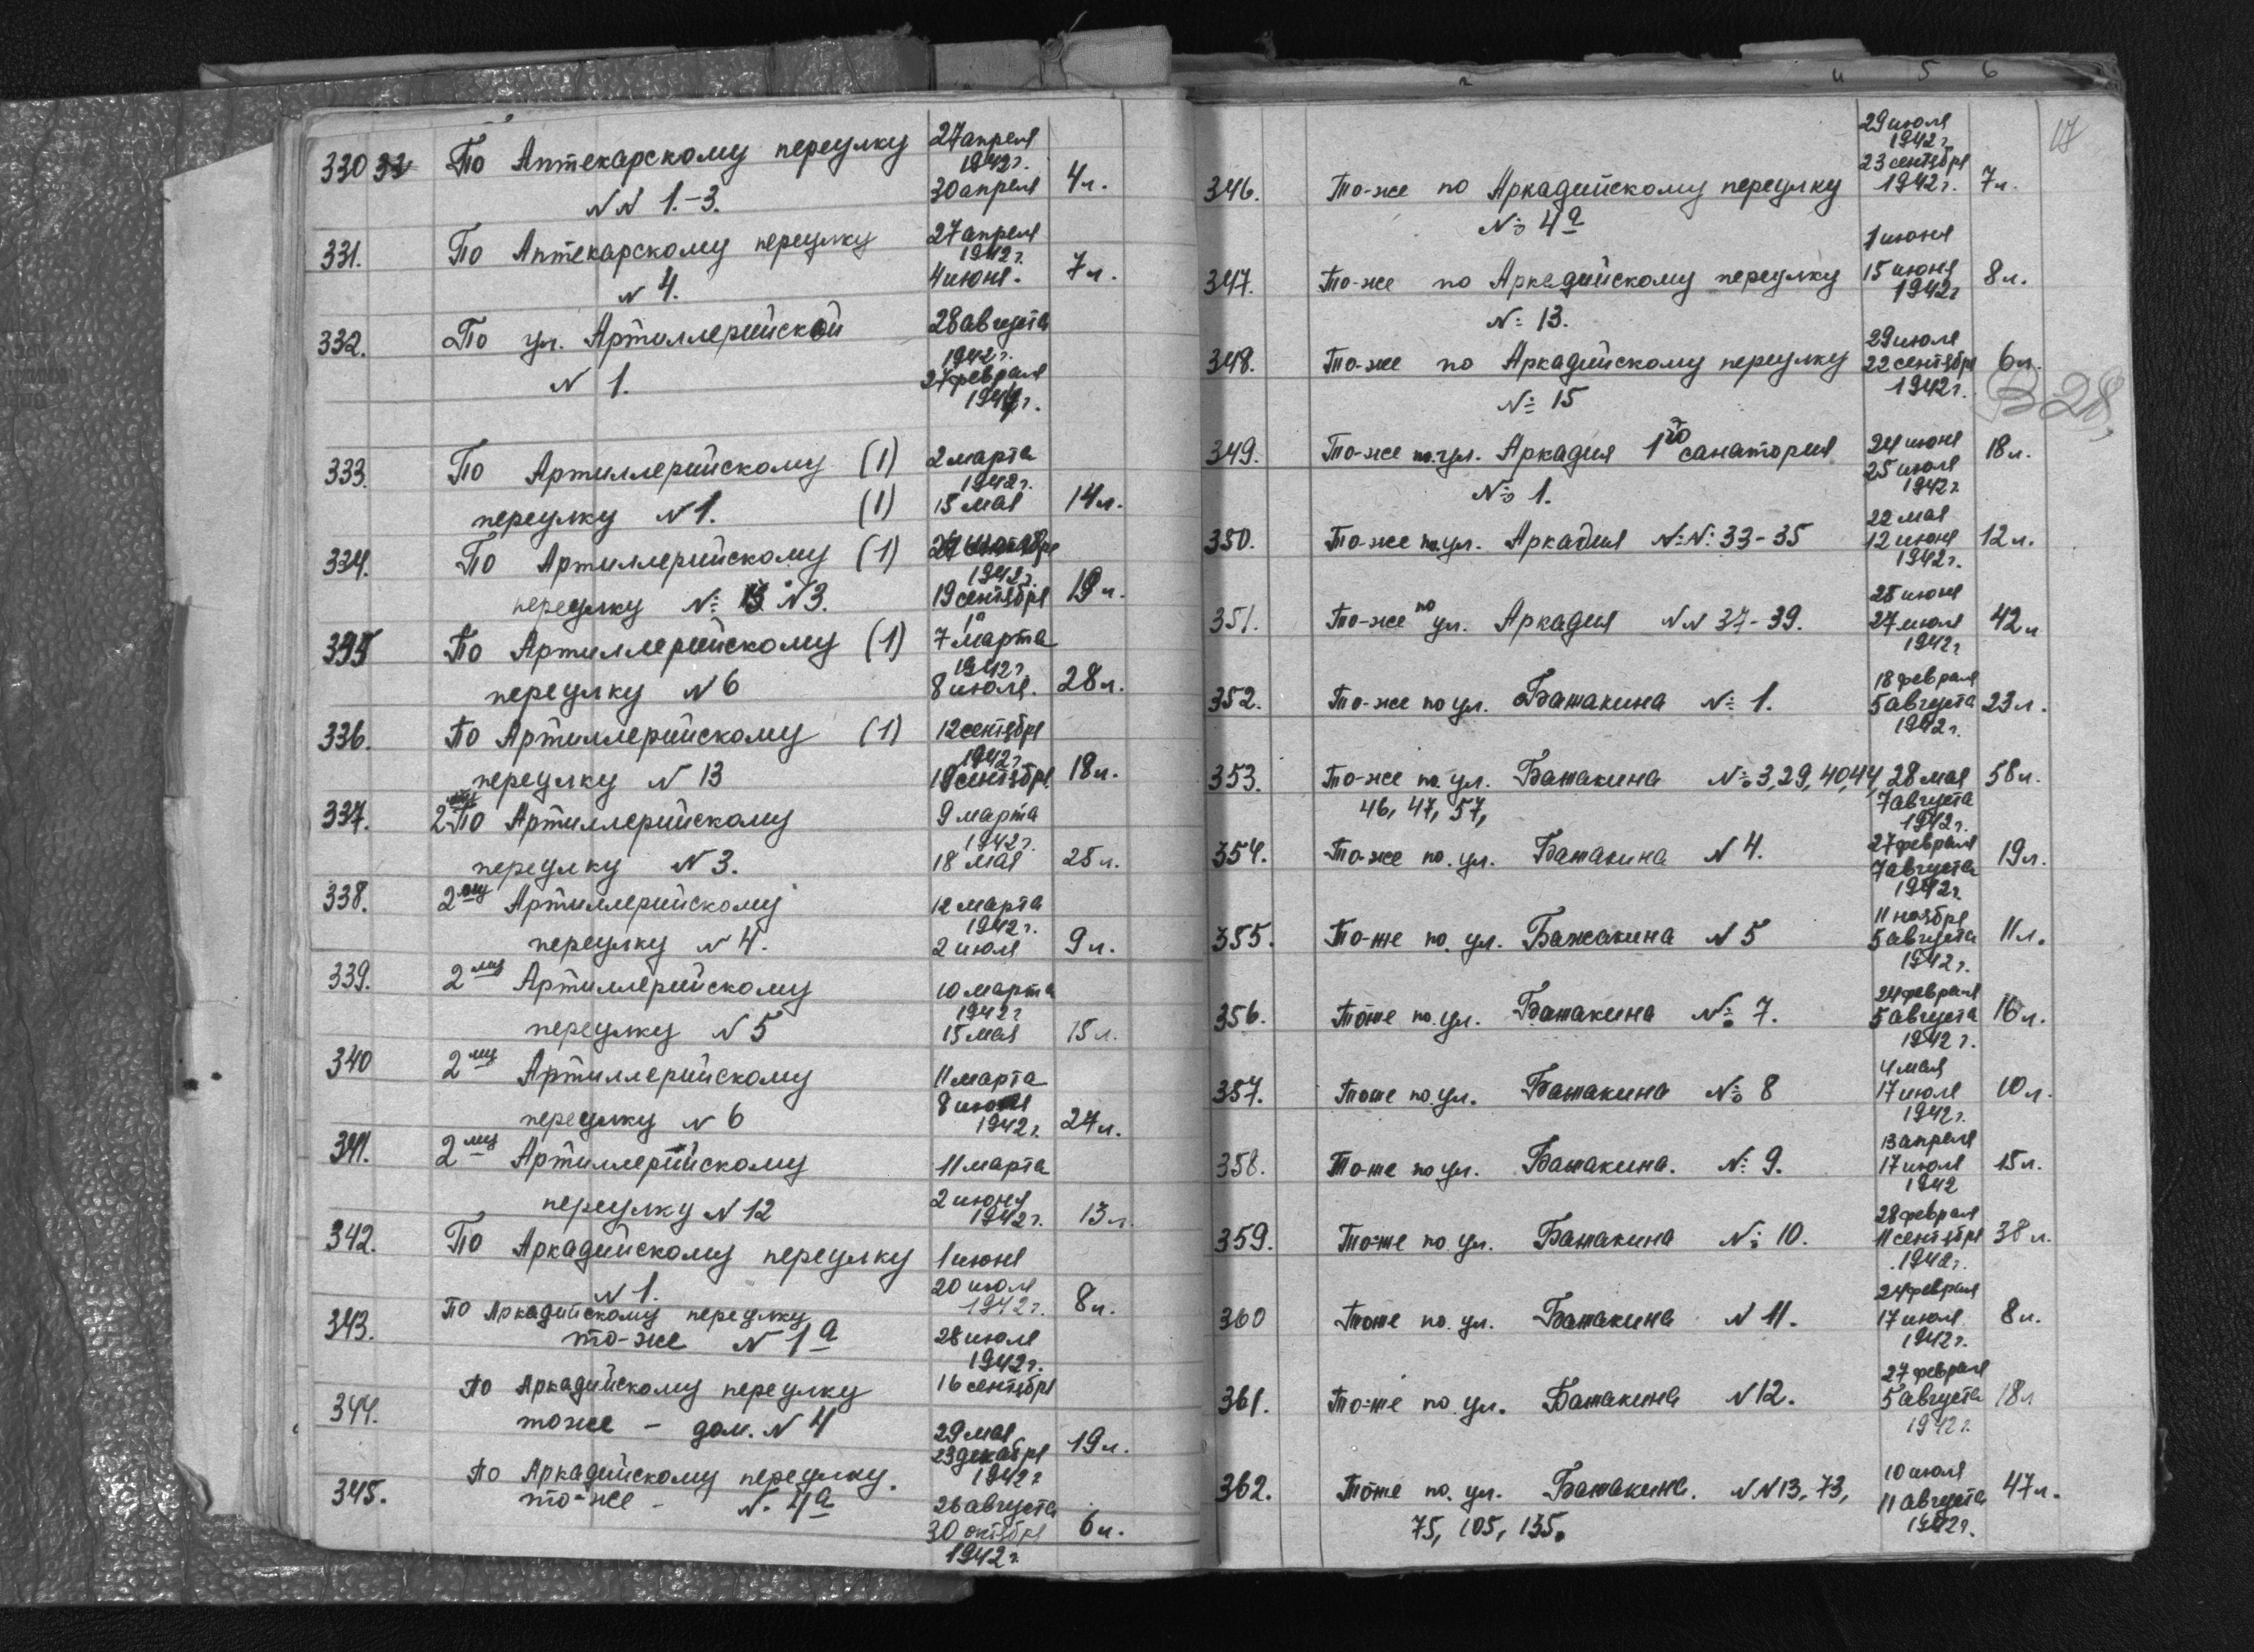 330 По Аптекарскому переулку 27 апреля
1942 г.
NN 1.-3. 30 апреля 4 л.
331. По Аптекарскому переулку 27 апреля
1942 г.
N 4. 4 июня. 7 л.
332. По ул. Артиллерийской 28 августа
1942 г.
N 1. 27 февраля
1944 г.
333. По Артиллерийскому (1) 2 марта
1942 г.
переулку N 1. (1) 15 мая 14 л.
334. По Артиллерийскому (1)
1942 г.
переулку №: N 3. 19 сентября 19 л.
335 По Артиллерийскому (1) 7 марта
1942 г.
переулку N 6 8 июля. 28 л.
336. По Артиллерийскому (1) 12 сентября
1942 г.
переулку N 13 19 сентября 18 л.
337. 2 По Артиллерийскому 9 марта
1942 г.
переулку N 3. 18 мая 25 л.
338. 2му Артиллерийскому 12 марта
1942 г.
переулку N 4. 2 июля 9 л.
339. 2му Артиллерийскому 10 марта
1942 г
переулку N 5 15 мая 15 л.
340 2му Артиллерийскому 11 марта
переулку N 6 8 июля
1942 г. 27 л.
341. 2му Артиллерийскому 11 марта
переулку N 12 2 июня
1942 г. 13 л.
342. По Аркадийскому переулку 1 июня
N 1. 20 июля
1942 г. 8 л.
343. По Аркадийскому переулку
то-же N 1а 28 июля
1942 г.
По Аркадийскому переулку 16 сентября
344. тоже - дом. N 4 29 мая
23 декабря 19 л.
По Аркадийскому переулку. 1942 г
345. то-же - N. 4а 26 августа
30 октября 6 л.
1942 г.
17
29 июля
1942 г.
23 сентября
346. То-же по Аркадийскому переулку 1942 г. 7 л.
№ 4а
1 июня
347. То-же по Аркадийскому переулку 15 июня 8 л.
1942 г
№ 13.
29 июля
348. То-же по Аркадийскому переулку 22 сентября 6 л.
№ 15 1942 г.
В 28,
349. То-же по ул. Аркадия 1го санатория 24 июня 18 л.
25 июля
№ 1. 1942 г.
22 мая
350. То-же по ул. Аркадия №№ 33-35 12 июня 12 л.
1942 г.
28 июня
351. То-же по ул. Аркадия NN 37-39. 27 июля 42 л
1942 г
18 февраля
352. То-же по ул. Батакина № 1. 5 августа 23 л.
1942 г.
353. То-же по ул. Батакина № 3, 29, 40, 44, 28 мая 58 л.
46, 47, 57, 7 августа
1942 г.
27 февраля
354. То-же по. ул. Батакина N 4. 7 августа 19 л.
1942 г.
11 ноября
355. То-же по. ул. Бажакина N 5 5 августа 11 л.
1942 г.
24 февраля
356. Тоже по. ул. Батакина № 7. 5 августа 16 л.
1942 г.
4 мая
357. Тоже по. ул. Батакина № 8 17 июля 10 л.
1942 г.
13 апреля
358. То-же по ул. Батакина. № 9. 17 июля 15 л.
1942
28 февраля
359. То-же по ул. Батакина № 10. 11 сентября 38 л.
1942 г.
24 февраля
360 Тоже по. ул. Батакина N 11. 17 июля 8 л.
1942 г.
27 февраля
361. То-же по. ул. Батакина N 12. 5 августа 18 л
1942 г.
10 июля
362. Тоже по. ул. Батакина. NN 13, 73, 11 августа 47 л.
75, 105, 135. 1942 г.